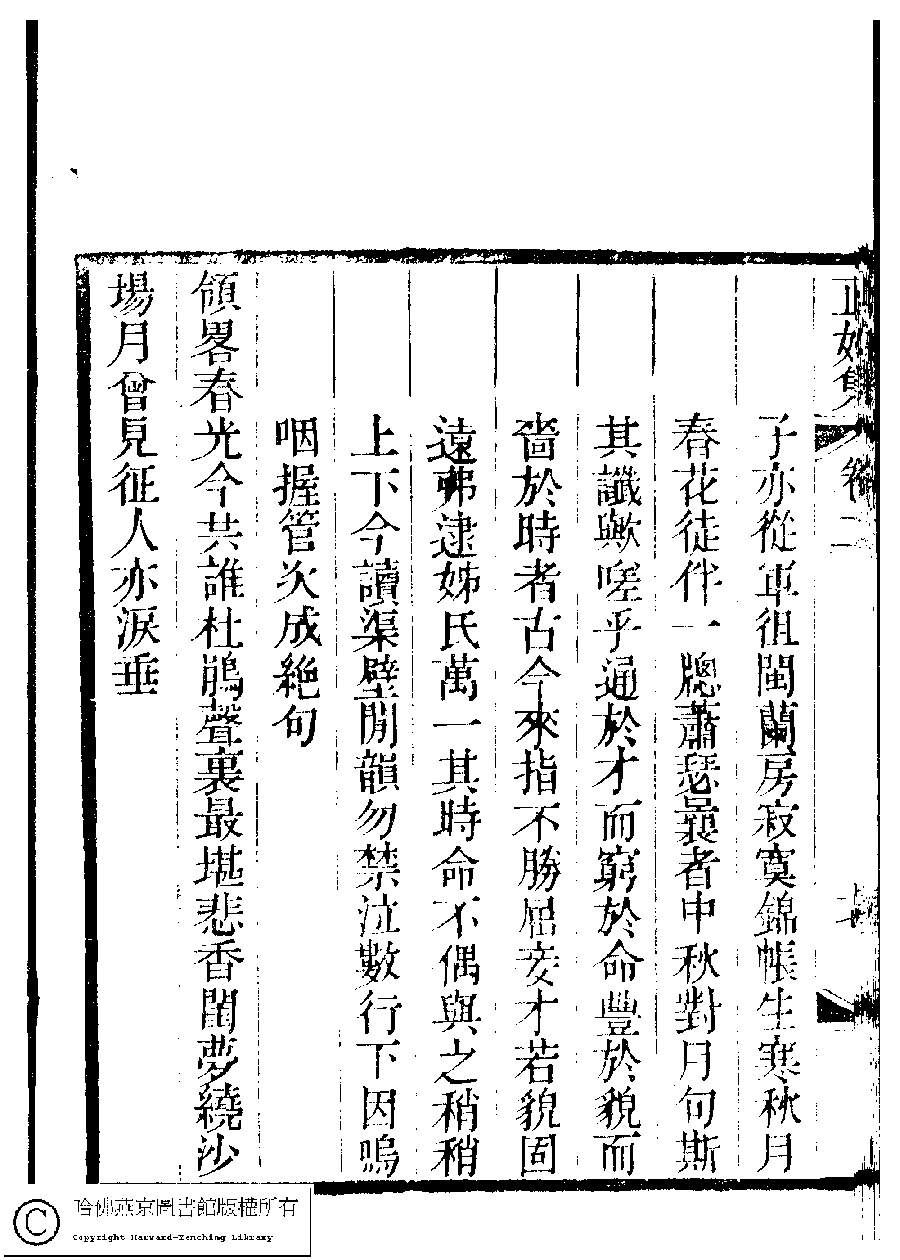 正始集 卷二
子亦從軍徂閩蘭房寂寞錦帳生寒秋月
春花徒伴一牕蕭瑟曩者中秋對月句斯
其讖歟嗟乎通於才而窮於命豐於貌而
嗇於時者古今來指不勝屈妾才若貌固
遠弗逮姊氏萬一其時命不偶與之稍稍
上下今讀渠壁間韻勿禁泣數行下因嗚
咽握管次成絕句
領畧春光今共誰杜鵑聲裏最堪悲香閨夢繞沙
場月曾見征人亦淚垂
哈佛燕京圖書館版權所有
Copyright Harvard-Yenching Library